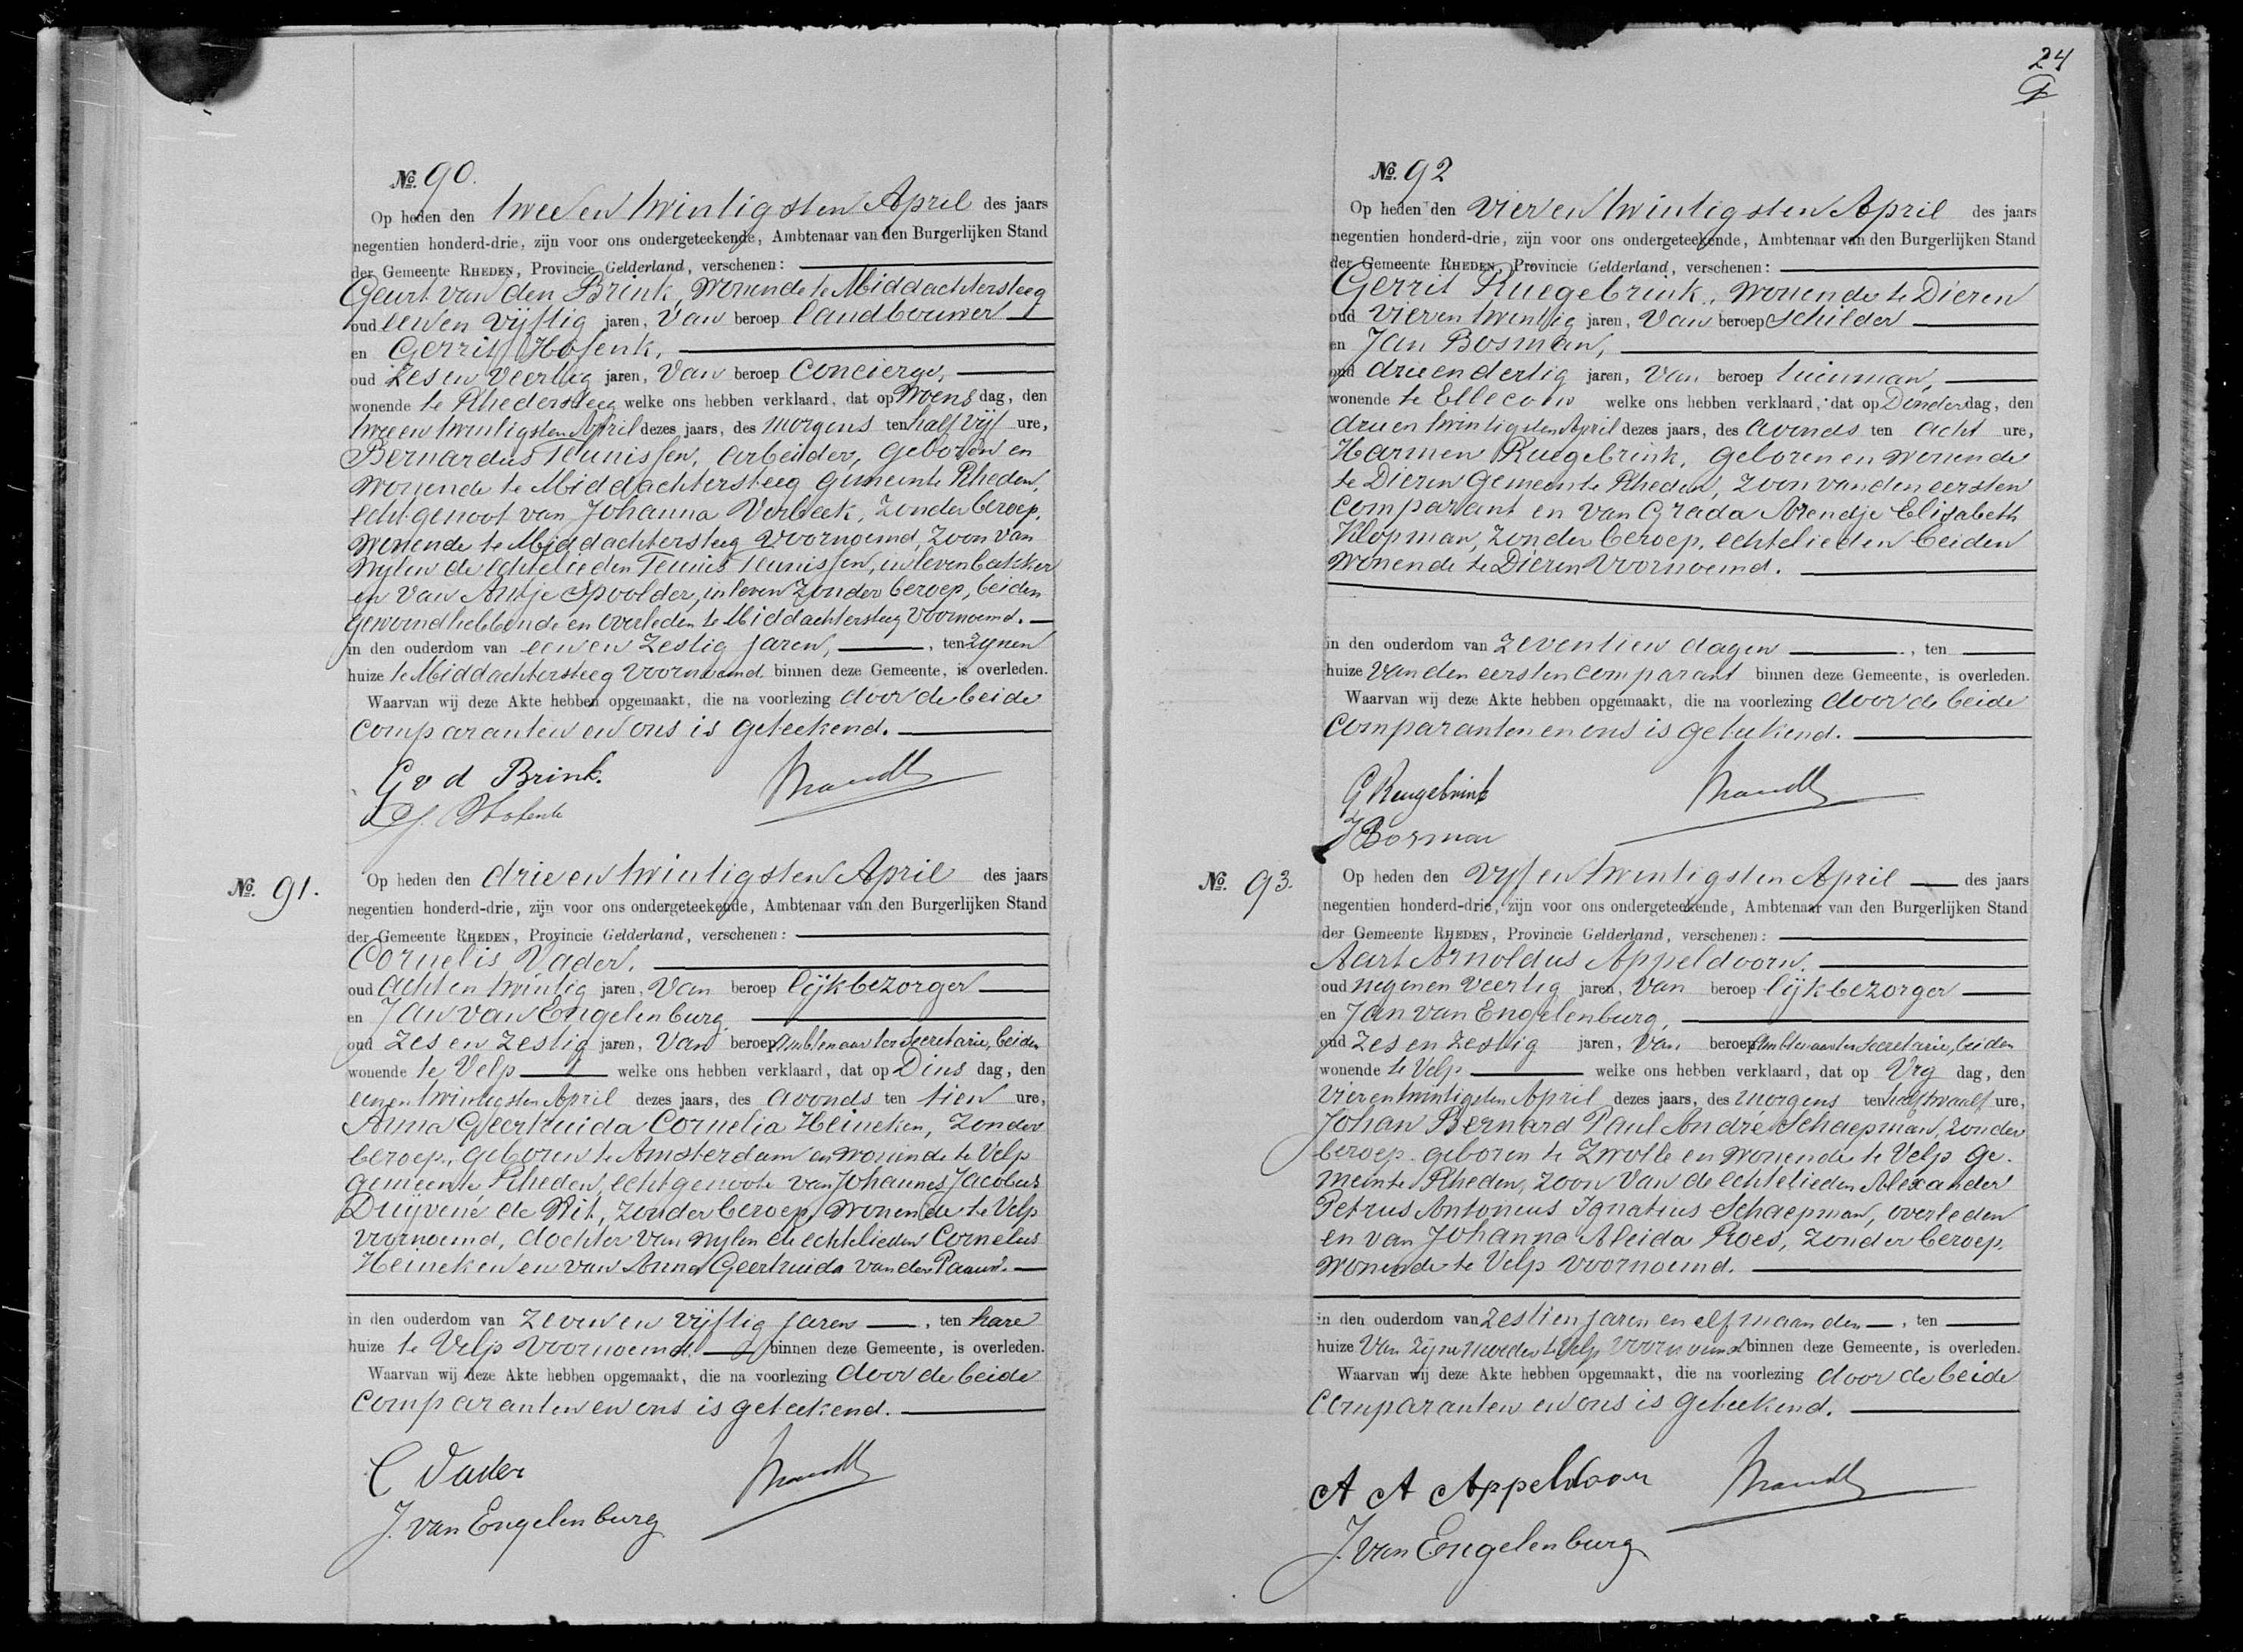 24
No. 90.
Op heden den twee en twintigsten April des jaars
negentien honderd-drie, zijn voor ons ondergeteekende, Ambtenaar van den Burgerlijken Stand
der Gemeente RHEDEN, Provincie Gelderland, verschenen:
Geurt van den Brink, wonende te Middachtersteeg
oud een en vijftig jaren, van beroep landbouwer
en Gerrit Hofenk,
oud zes en veertig jaren, van beroep concierge,
wonende te Rhedersteeg welke ons hebben verklaard, dat op Woens dag, den
twee en twintigsten April dezes jaars, des morgens ten half vijf ure,
Bernardus Teunissen, arbeider, geboren en
wonende te Middachtersteeg gemeente Rheden,
echtgenoot van Johanna Verbeek, zonder beroep,
wonende te Middachtersteeg voornoemd, zoon van
wylen de echtelieden Teunis Teunissen, in leven bakker
en van Antje Spoolder, in leven zonder beroep, beiden
gewoond hebbende en overleden te Middachtersteeg voornoemd.
in den ouderdom van een en zestig jaren, , ten zynen
huize te Middachtersteeg voornoemd binnen deze Gemeente, is overleden.
Waarvan wij deze Akte hebben opgemaakt, die na voorlezing door de beide
comparanten en ons is geteekend.
G v d Brink.
G. Hofenk
Brandt
No. 91.
Op heden den drie en twintigsten April des jaars
negentien honderd-drie, zijn voor ons ondergeteekende, Ambtenaar van den Burgerlijken Stand
der Gemeente RHEDEN, Provincie Gelderland, verschenen:
Cornelis Vader,
oud acht en twintig jaren, van beroep lijkbezorger
en Jan van Engelenburg,
oud zes en zestig jaren, van beroep Ambtenaar ter Secretarie, beiden
wonende te Velp welke ons hebben verklaard, dat op Dins dag, den
een en twintigsten April dezes jaars, des avonds ten tien ure,
Anna Geertruida Cornelia Heineken, zonder
beroep, geboren te Amsterdam en wonende te Velp
gemeente Rheden, echtgenoote van Johannes Jacobus
Duijvené de Wit, zonder beroep, wonende te Velp
voornoemd, dochter van wylen de echtelieden Cornelus
Heineken en van Anna Geertruida van der Paauw.
in den ouderdom van zeven en vijftig jaren , ten hare
huize te Velp voornoemd. binnen deze Gemeente, is overleden.
Waarvan wij deze Akte hebben opgemaakt, die na voorlezing door de beide
comparanten en ons is geteekend.
C Vader
J. van Engelenburg
Brandt
No. 92
Op heden den vier en twintigsten April des jaars
negentien honderd-drie, zijn voor ons ondergeteekende, Ambtenaar van den Burgerlijken Stand
der Gemeente RHEDEN, Provincie Gelderland, verschenen:
Gerrit Ruegebrink, wonende te Dieren
oud vier en twintig jaren, van beroep schilder
en Jan Bosman,
oud drie en dertig jaren, van beroep tuinman,
wonende te Ellecom welke ons hebben verklaard, dat op Donderdag, den
drie en twintigsten April dezes jaars, des avonds ten acht ure,
Harmen Ruegebrink, geboren en wonende
te Dieren Gemeente Rheden, zoon van den eersten
comparant en van Grada Arendje Elisabeth
Klopman, zonder beroep, echtelieden beiden
wonende te Dieren voornoemd.
in den ouderdom van zeventien dagen , ten
huize van den eersten comparant binnen deze Gemeente, is overleden.
Waarvan wij deze Akte hebben opgemaakt, die na voorlezing door de beide
comparanten en ons is geteekend.
G Reugebrink
J Bosman
Brandt
No. 93.
Op heden den vyf en twintigsten April des jaars
negentien honderd-drie, zijn voor ons ondergeteekende, Ambtenaar van den Burgerlijken Stand
der Gemeente RHEDEN, Provincie Gelderland, verschenen:
Aart Arnoldus Appeldoorn,
oud negen en veertig jaren, van beroep lijkbezorger
en Jan van Engelenburg,
oud zes en zestig jaren, van beroep Ambtenaar ter Secretarie, beiden
wonende te Velp welke ons hebben verklaard, dat op Vry dag, den
vier en twintigsten April dezes jaars, des morgens ten half twaalf ure,
Johan Bernard Paul André Schaepman, zonder
beroep geboren te Zwolle en wonende te Velp ge-
meente Rheden, zoon van de echtelieden Alexander
Petrus Antonius Ignatius Schaepman, overleden
en van Johanna Aleida Roes, zonder beroep,
wonende te Velp voornoemd.
in den ouderdom van zestien jaren en elf maanden , ten
huize van zijne moeder te Velp voornoemd binnen deze Gemeente, is overleden.
Waarvan wij deze Akte hebben opgemaakt, die na voorlezing door de beide
comparanten en ons is geteekend.
A A Appeldoorn
J. van Engelenburg
Brandt